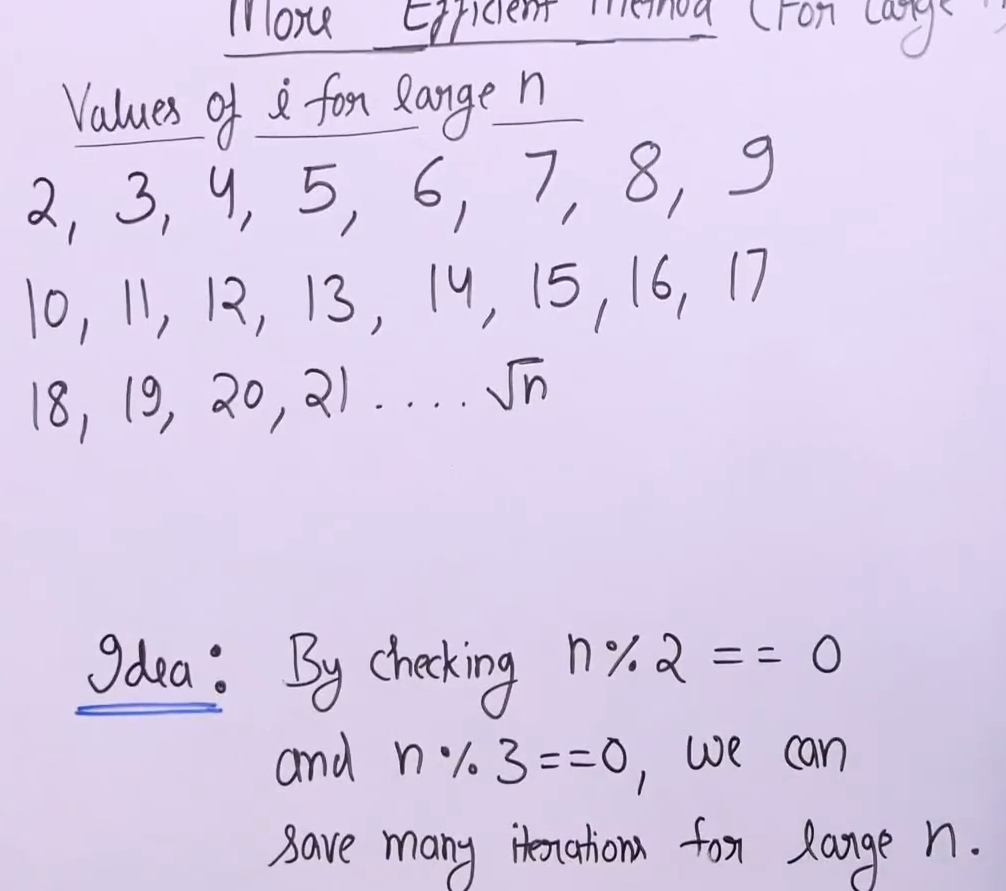 More Efficient Method (For Large
Values of i for large n
2, 3, 4, 5, 6, 7, 8, 9
10, 11, 12, 13, 14, 15, 16, 17
18, 19, 20, 21 .... √n
Idea: By checking n%2 == 0
and n%3==0, we can
save many iterations for large n.